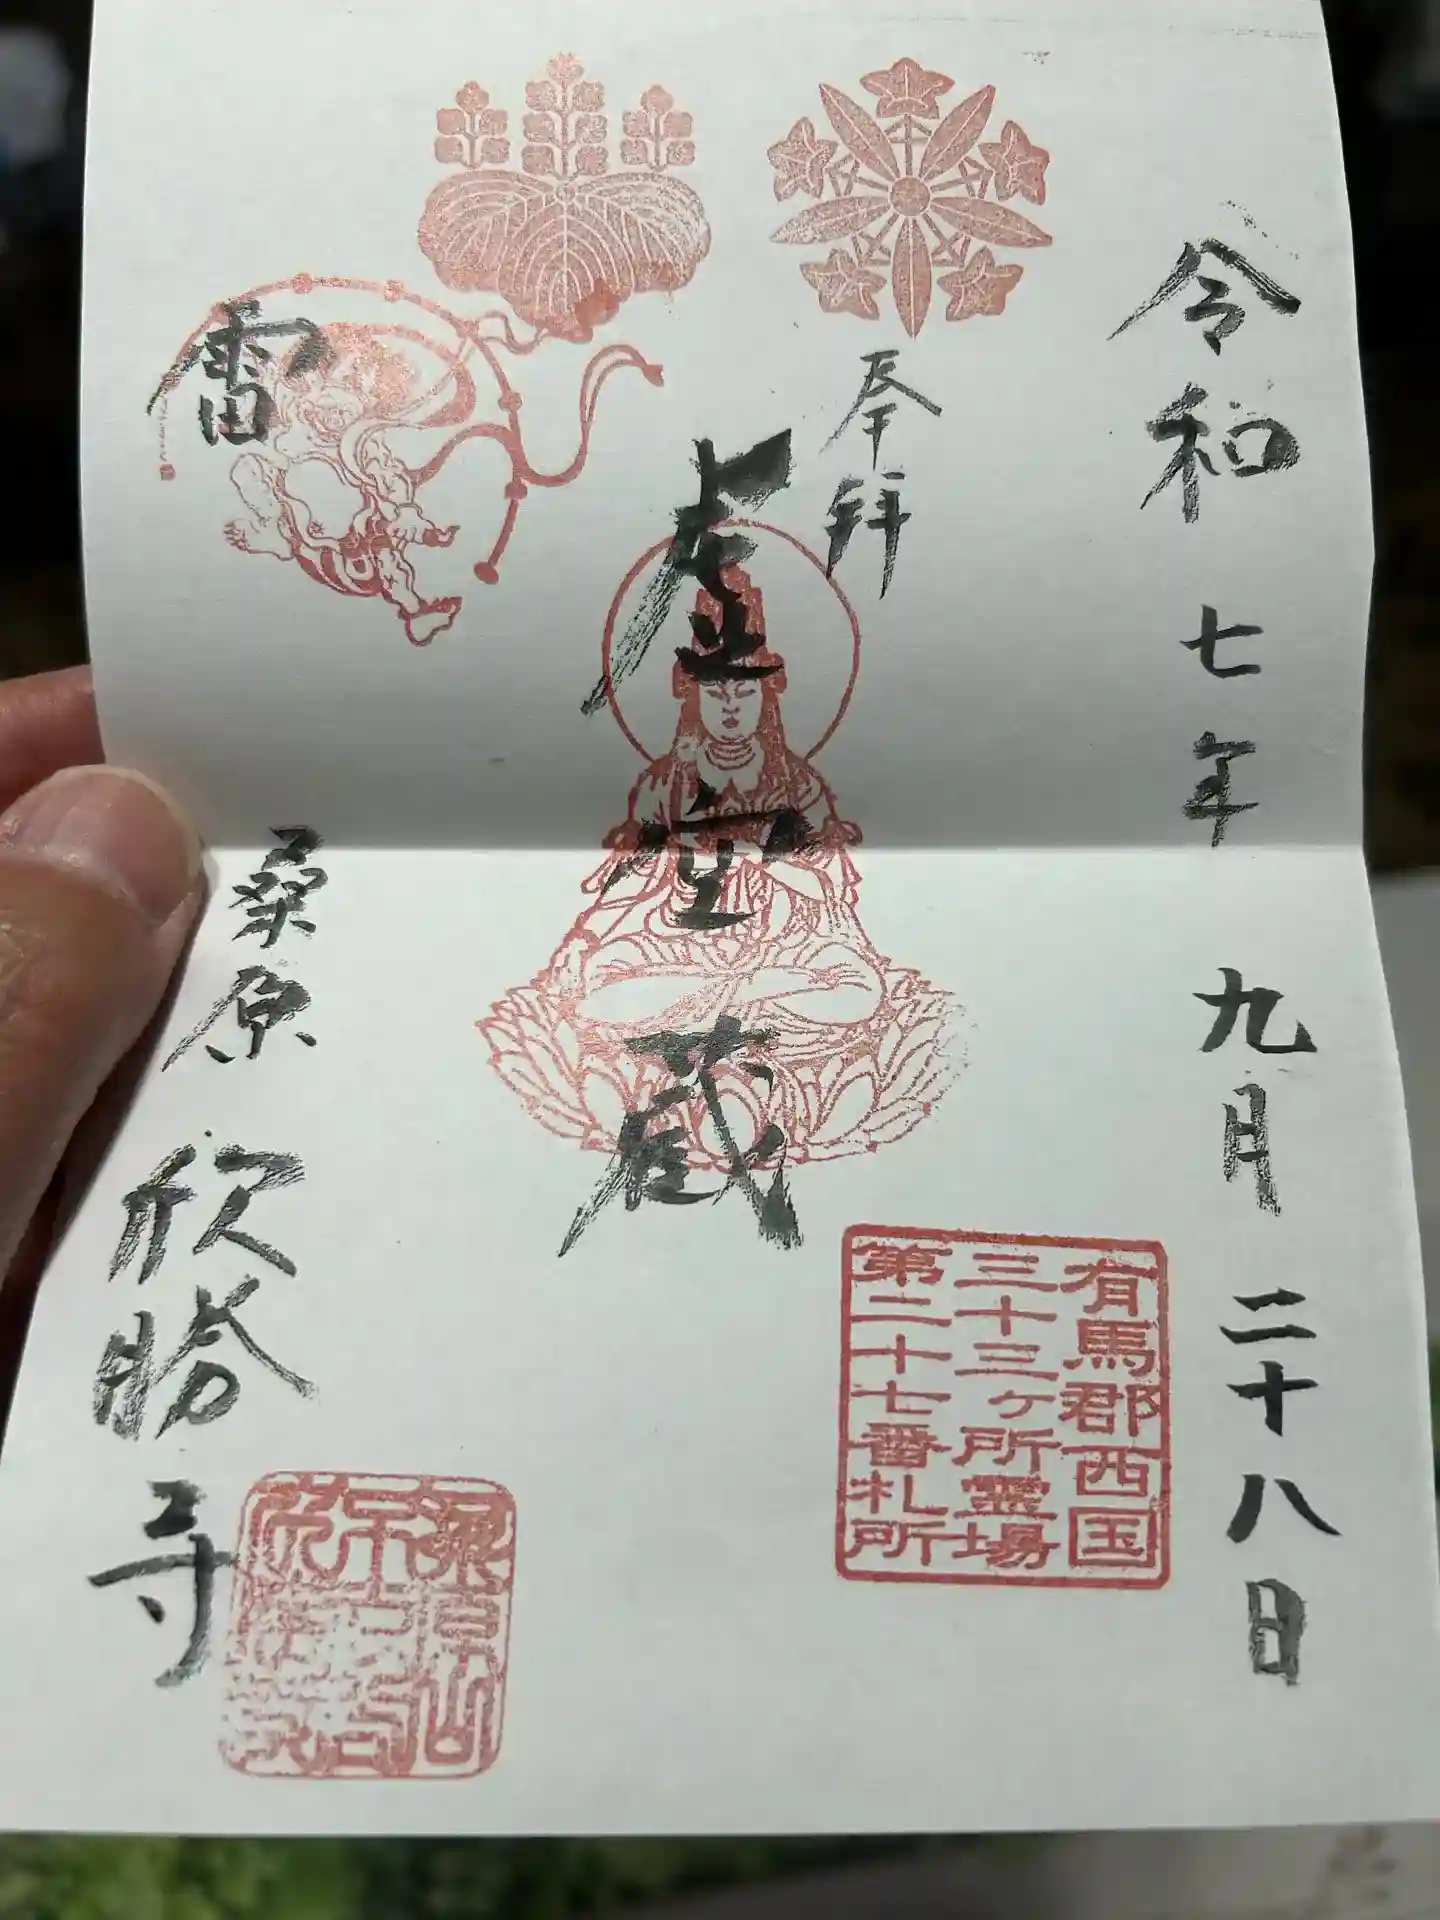 令和七年九月二十八日
奉拝
虚空蔵
雷
桑原 欣勝寺
有馬郡西国
三十三ヶ所霊場
第二十七番札所